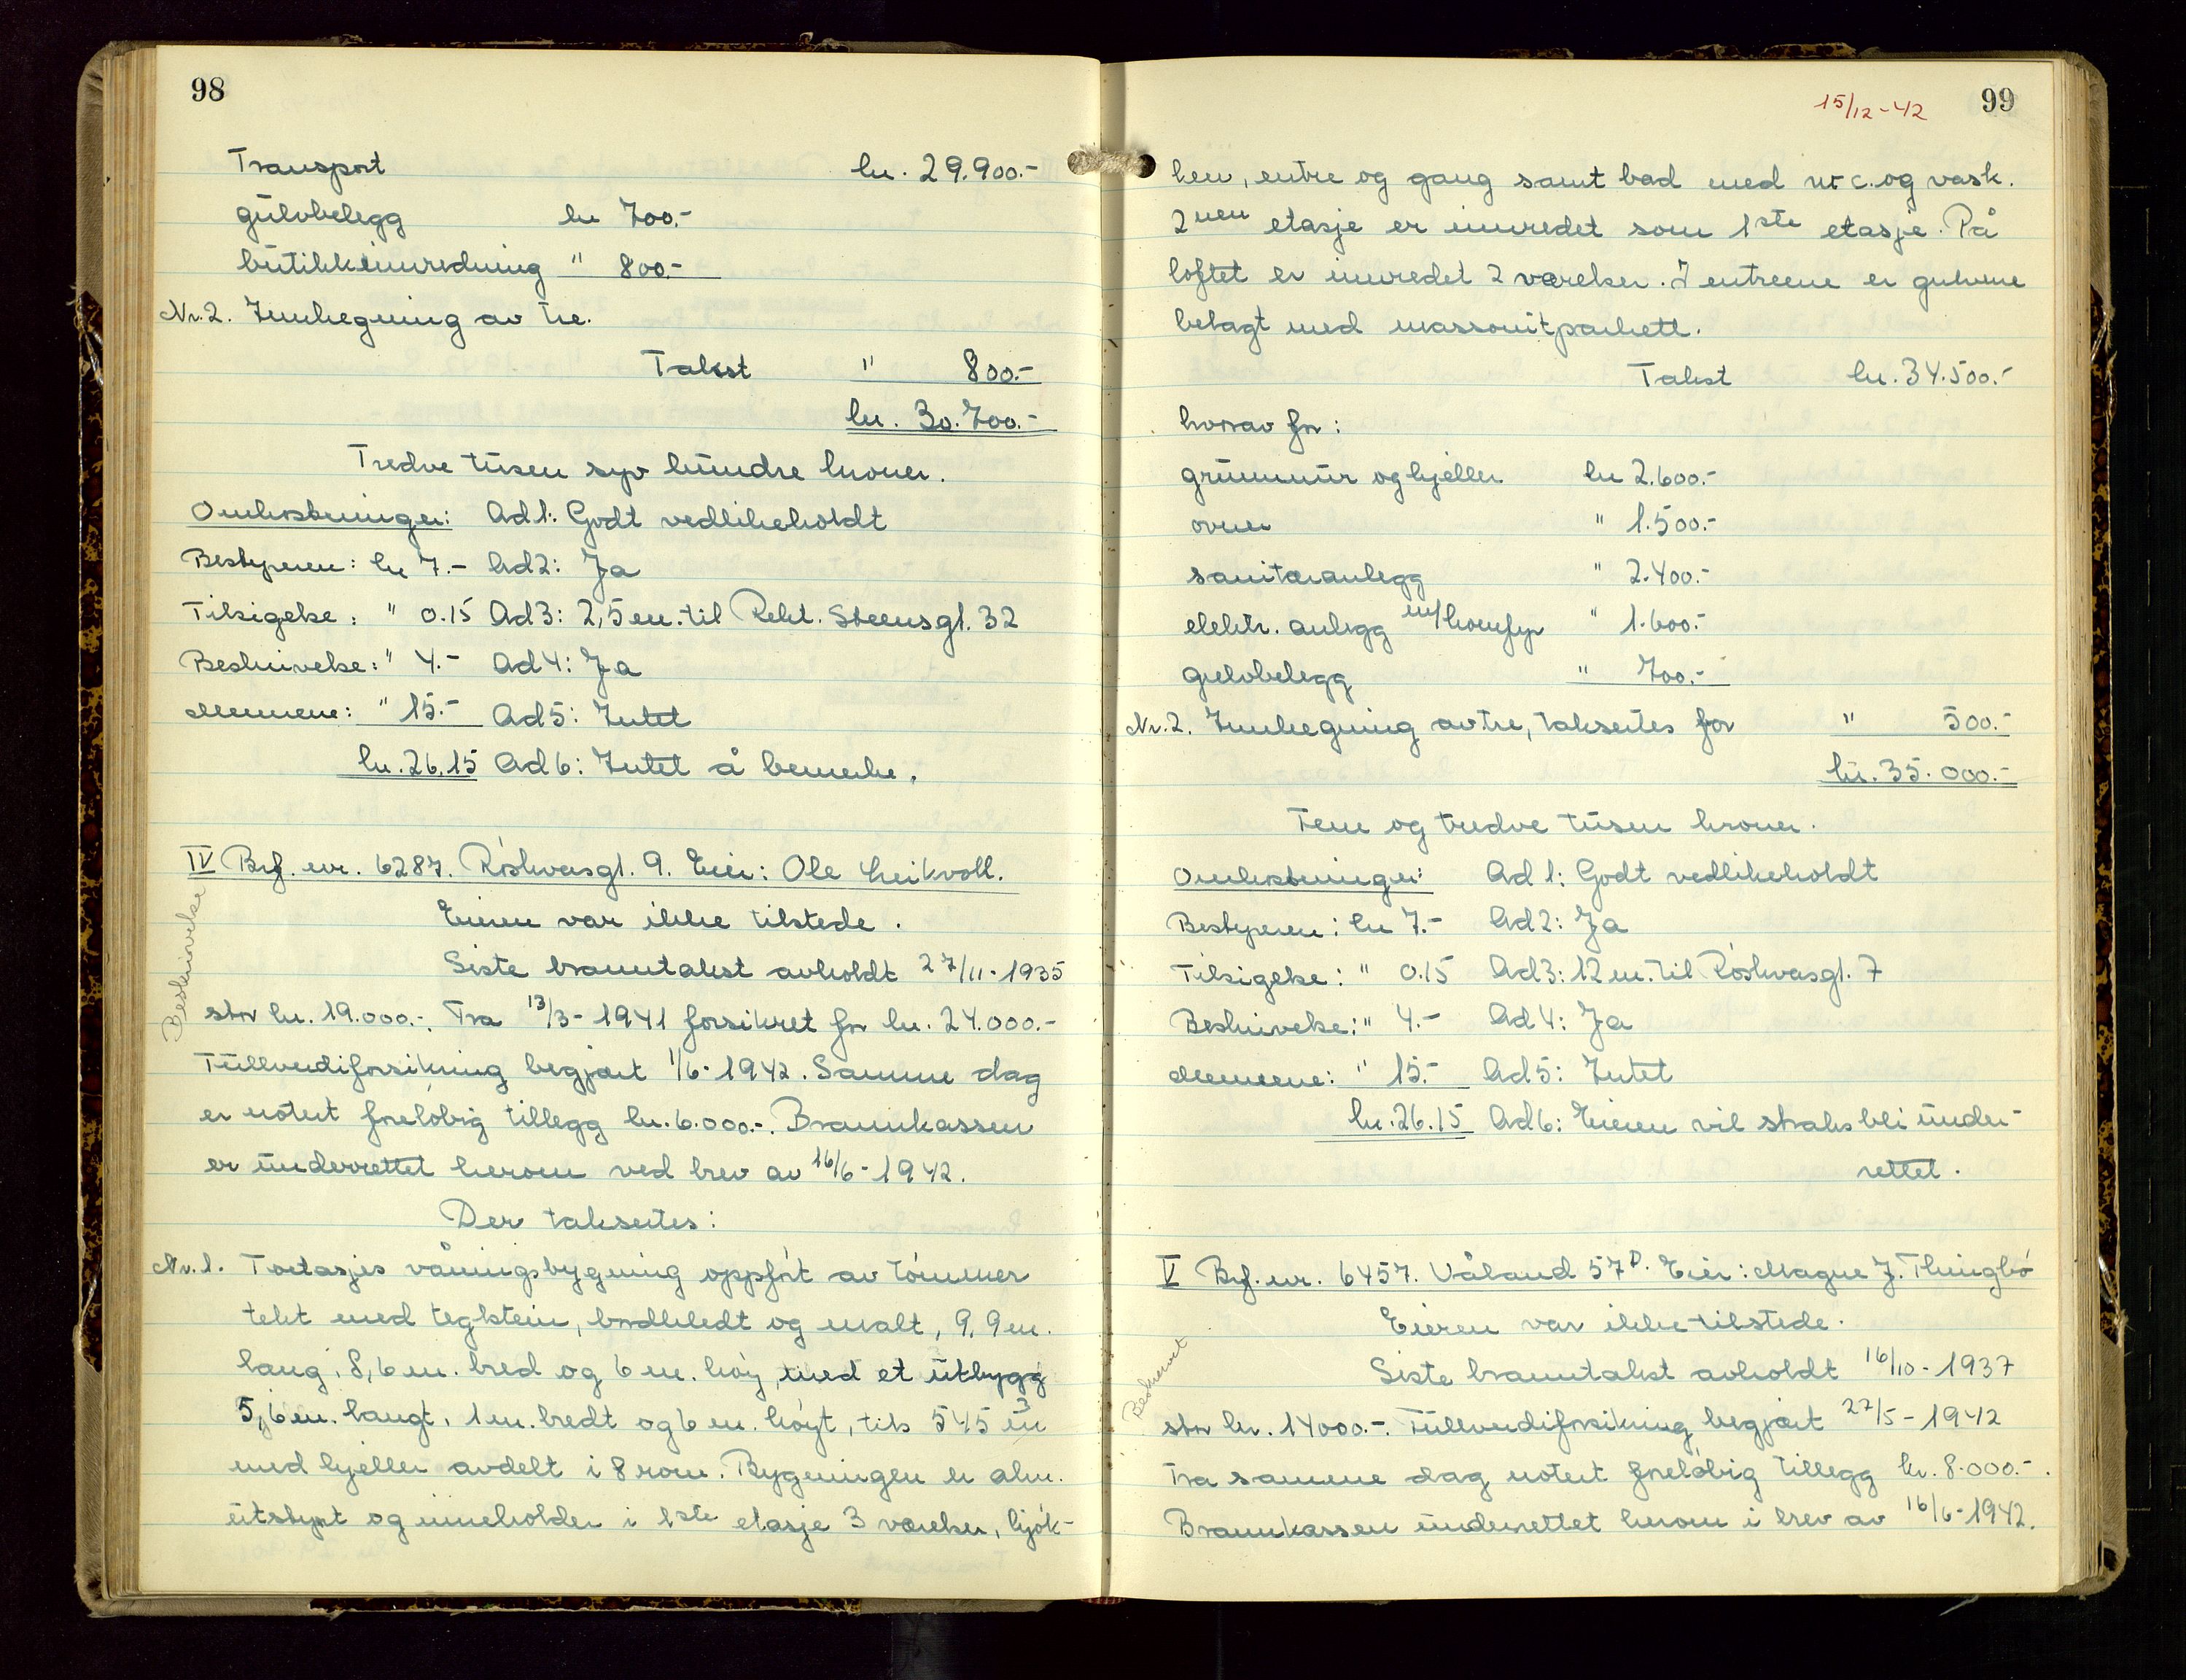 98
Transport kr. 29.900.-
gulvbelegg kr 700.-
butikkinnredning " 800.-
Nr. 2. Innhegning av tre.
Takst " 800.-
kr. 30.700.-
Tredve tusen syv hundre kroner.
Omkostninger: Ad 1: Godt vedlikeholdt
Bestyreren: kr 7.- Ad 2: Ja
Tilsigelse: " 0.15 Ad 3: 2,5 m. til Rekt. Steensgt. 32
Beskrivelse: " 4.- Ad 4: Ja
Mennene: " 15.- Ad 5: Intet
kr. 26.15 Ad 6: Intet å bemerke.
IV Brf. nr. 6287. Röskvasgt. 9. Eier: Ole Leikvoll.
Beskrivelse
Eieren var ikke tilstede.
Siste branntakst avholdt 27/11-1935
stor kr. 19.000.-. Fra 13/3-1941 forsikret for kr. 24.000.-
Fullverdiforsikring begjært 1/6-1942. Samme dag
er notert foreløbig tillegg kr. 6.000.-. Brannkassen
er underrettet herom ved brev av 16/6-1942.
Der takseres:
Nr. 1. Toetasjes våningsbygning oppført av tømmer
tekt med teglstein, bordkledt og malt, 9,9 m.
lang, 8,6 m. bred og 6 m. høy, med et utbygg
5,6 m. langt, 1 m. bredt og 6 m. høyt, tils 545 m3
med kjeller avdelt i 8 rom. Bygningen er alm.
utstyrt og inneholder i 1ste etasje 3 værelser, kjøk-
15/12-42 99
ken, entre og gang samt bad med w.c. og vask.
2nen etasje er innredet som 1ste etasje. På
loftet er innredet 2 værelser. I entreene er gulvene
belagt med massonitparkett.
Takst kr. 34.500.-
hvorav for:
grunnmur og kjeller kr 2.600.-
ovner " 1.500.-
sanitæranlegg " 2.400.-
elektr. anlegg m/komfyr " 1.600.-
gulvbelegg " 700.-
Nr. 2. Innhegning av tre, takseres for " 500.-
kr. 35.000.-
Fem og tredve tusen kroner.
Omkostninger: Ad 1: Godt vedlikeholdt
Bestyreren: kr 7.- Ad 2: Ja
Tilsigelse: " 0.15 Ad 3: 12 m. til Röskvasgt. 7
Beskrivelse: " 4.- Ad 4: Ja
Mennene: " 15.- Ad 5: Intet
kr. 26.15 Ad 6: Eieren vil straks bli under-
rettet.
V Brf. nr. 6457. Våland 57D. Eier: Magne J. Thingbø
Eieren var ikke tilstede.
Beskrevet
Siste branntakst avholdt 16/10-1937
stor kr. 14000.-. Fullverdiforsikring begjært 27/5-1942
Fra samme dag notert foreløbig tillegg kr. 8.000.-.
Brannkassen underrettet herom i brev av 16/6-1942.